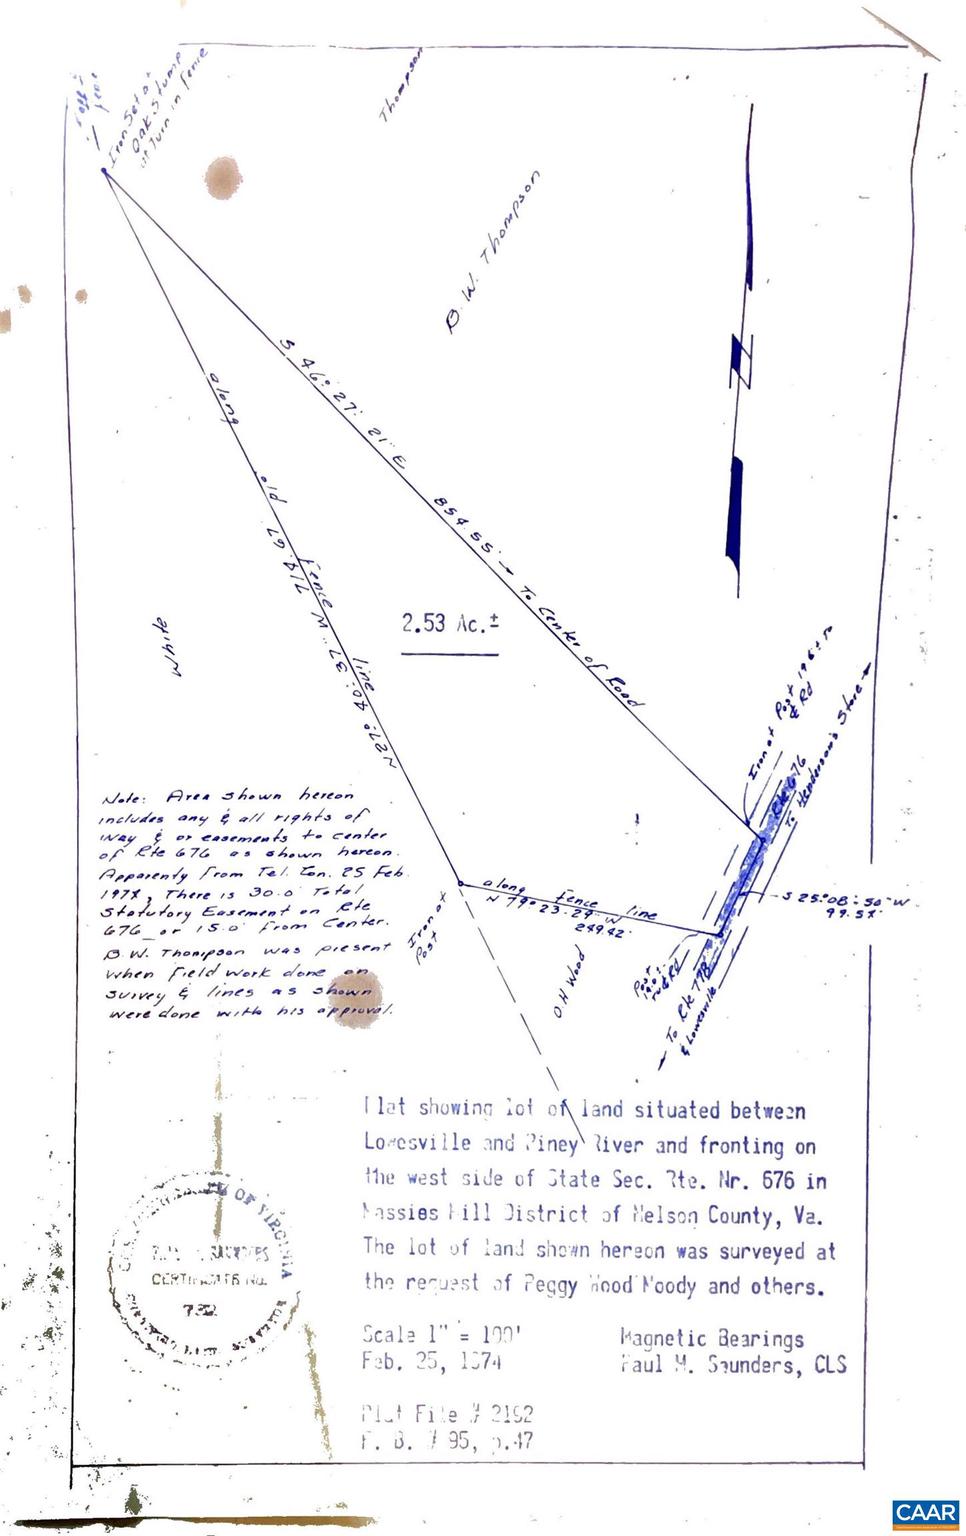 Iron Set at
Oak Stump
at Turn in Fence
Thompson
B. W. Thompson
N
S 46° 27' 21" E 854.55' → To Center of Road
along old fence line
N 27° 40' 37" W 714.67
2.53 Ac.±
White
Iron at Post 19.6± to
℄ Rd
Rte 676
To Henderson's Store →
S 25° 08' 50" W
99.57'
along fence line
N 79° 23' 29" W
249.42'
Iron at
Post
O.H Wood
Post
to ℄ Rd
← To Rte 778
& Lowesville
Note: Area shown hereon
includes any & all rights of
way & or easements to center
of Rte 676 as shown hereon.
Apparently from Tel. Con. 25 Feb.
1974, There is 30.0' Total
Statutory Easement on Rte
676 or 15.0' from Center.
B.W. Thompson was present
when field work done on
survey & lines as shown
were done with his approval.
Plat showing lot of land situated between
Lowesville and Piney River and fronting on
the west side of State Sec. Rte. Nr. 676 in
Massies Mill District of Nelson County, Va.
The lot of land shown hereon was surveyed at
the request of Peggy Wood Moody and others.
Scale 1" = 100'
Feb. 25, 1974
Magnetic Bearings
Paul M. Saunders, CLS
Plat File # 2192
F. B. # 95, p.47
OF VIRGINIA
SAUNDERS
CERTIFICATE NO.
732
CAAR